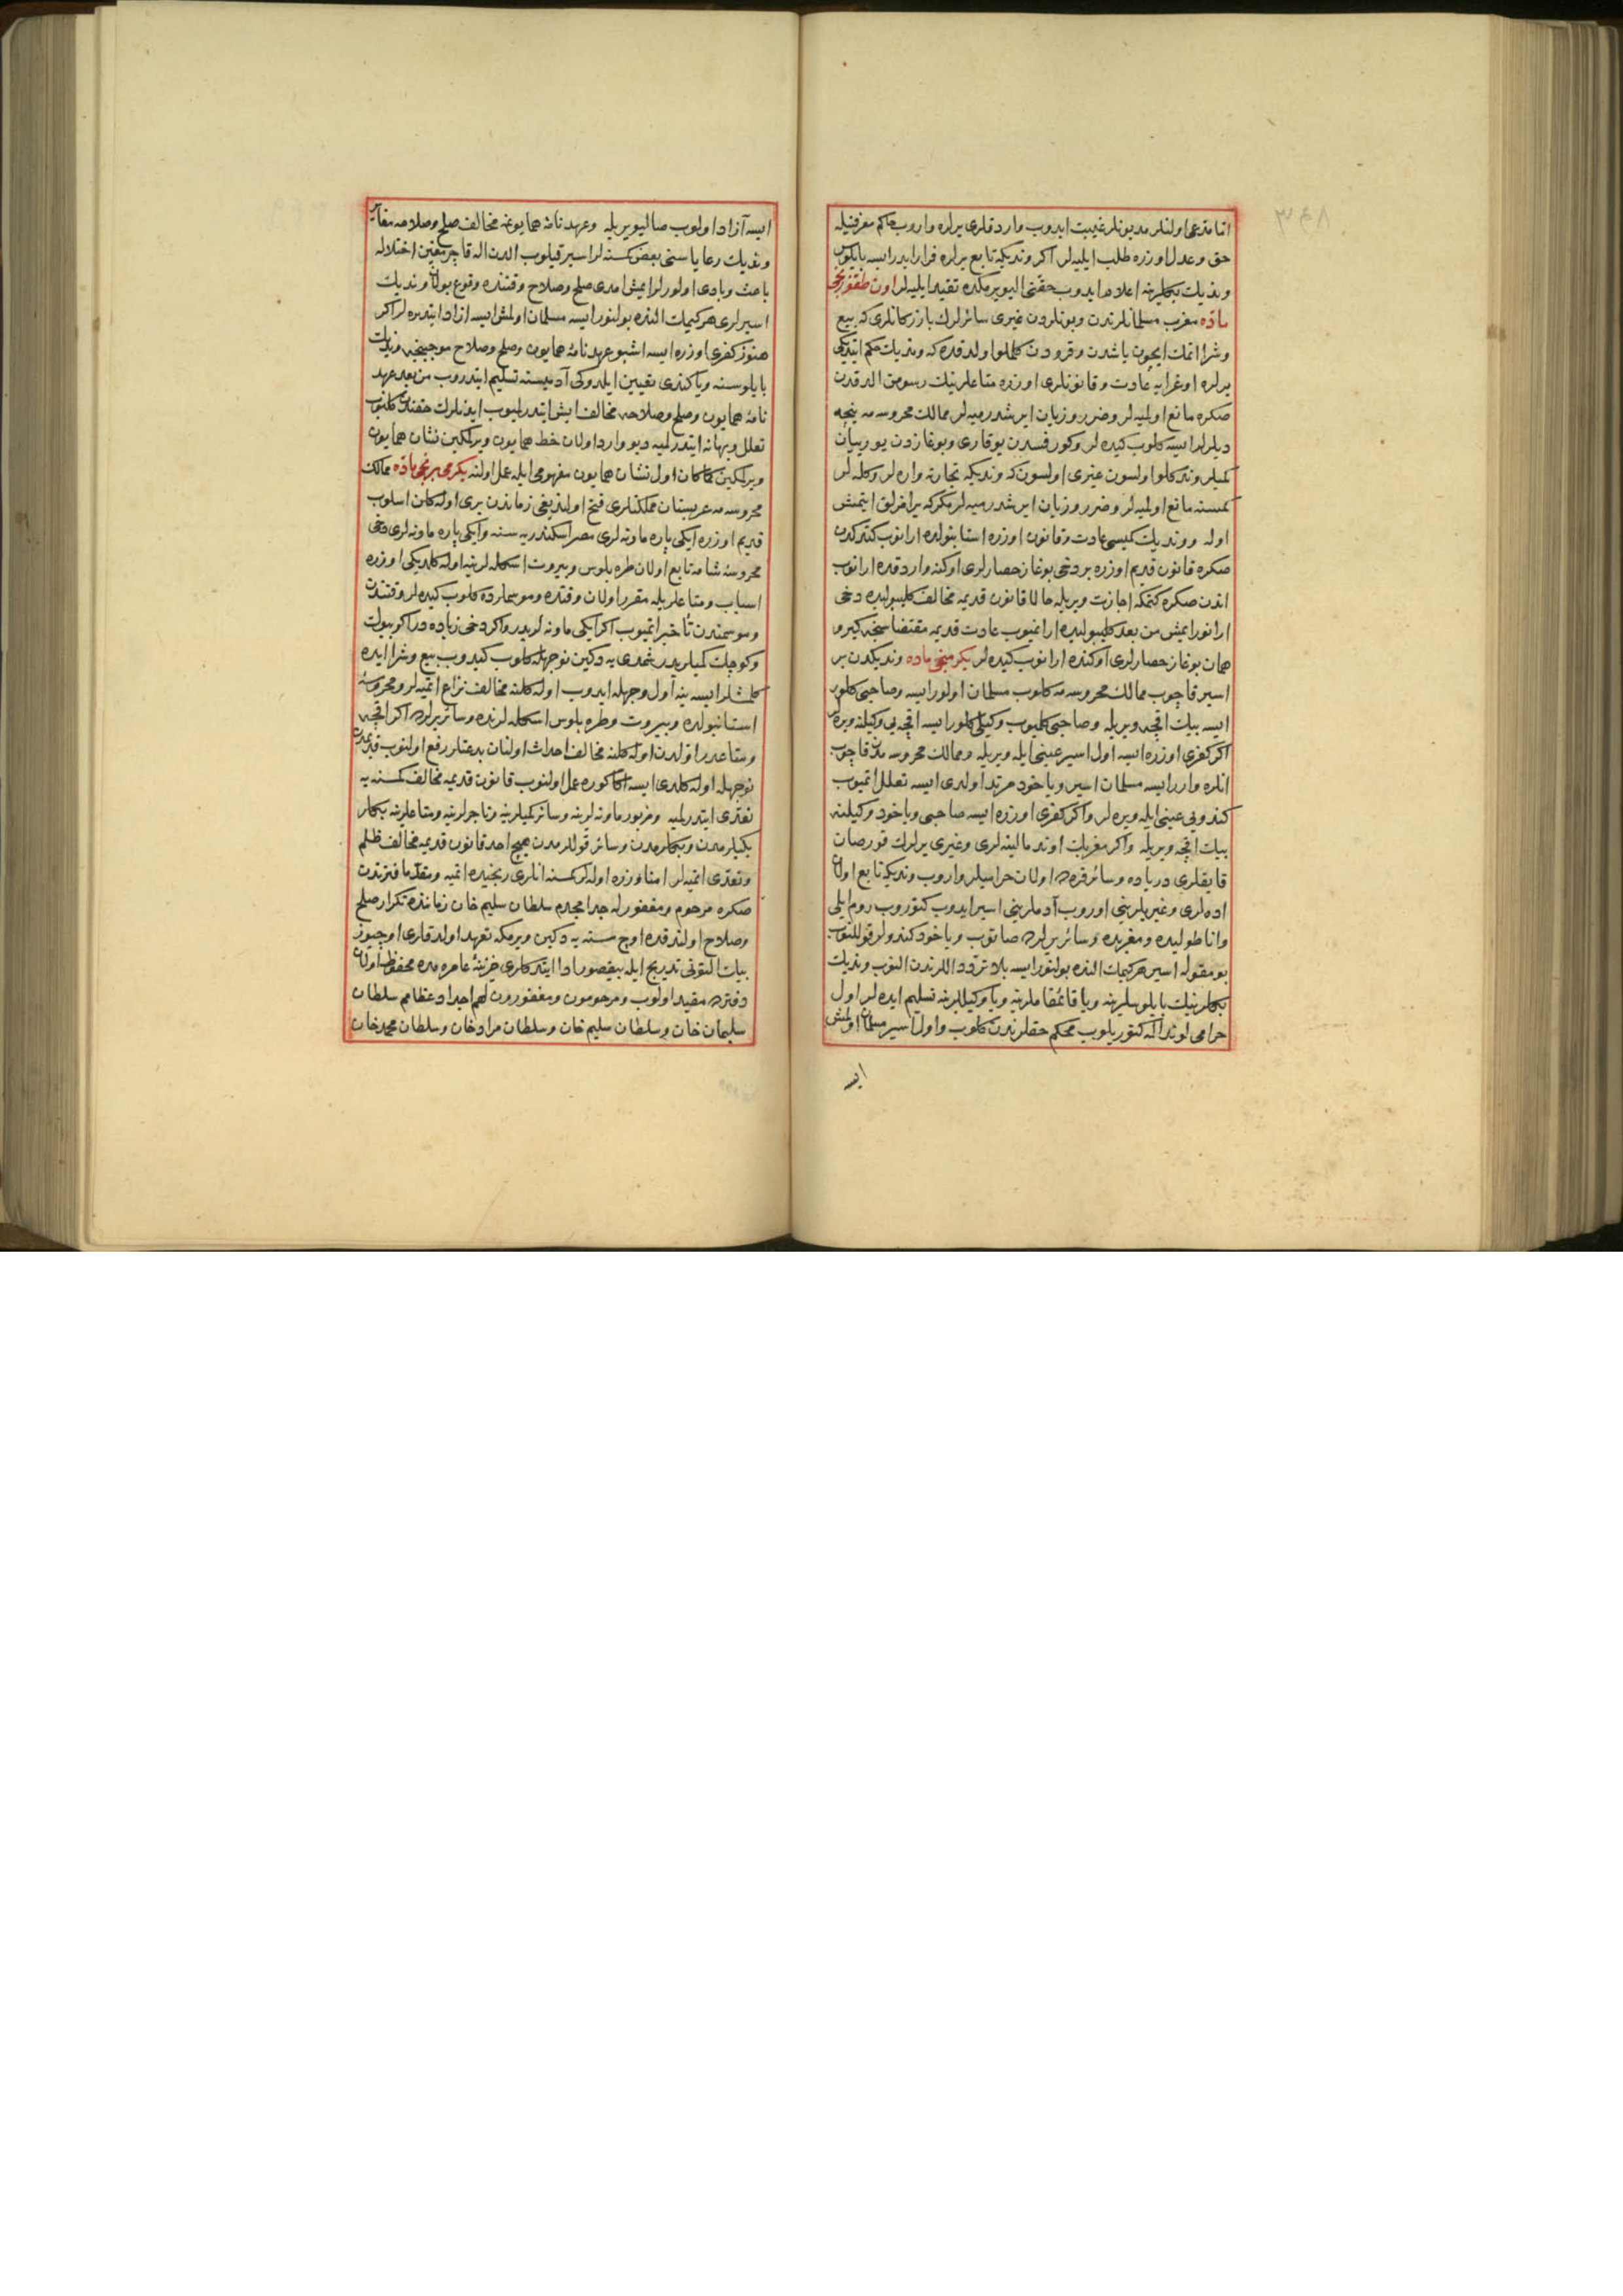 اتا مدعی اولنلر مدیونلر غیبت ایدوب واردقلری یرلره واروب حاکم معرفتیله
حق و عدل اوزره طلب ایلیه لر اکر وندیکه تابع یرلره فرار ایدر ایسه بایلوس
وندیك بکلرینه اعلام ایدوب حقنی الیویرمکده تقید ایلیه لر اون طقوزنجی
ماده مغرب مسلمانلرندن و بونلردن غیری سائرلرك بازرکانلری که بیع
و شرا اتمك ایچون یاشدن و قرودن کلملو اولدقده که وندیك حکم ایتدیکی
یرلره اوغرایه عادت و قانونلری اوزره متاعلرینك رسومن الدقدن
صکره مانع اولمیه لر و ضرر و زیان ایرشدرمیه لر ممالك محروسه مه ینجه
دیلرلر ایسه کلوب کیده لر و کورفسدن یوقاری و بوغازدن یوریان
کمیلر وندکلوا اولسون غیری اولسون که وندیکه تجارته واره لر و کله لر
کمسنه مانع اولمیه لر و ضرر و زیان ایرشدرمیه لر مکر که یرامزلق ایتمش
اوله و وندیك کمیسی عادت و قانون اوزره استانبولده ارانوب کتدکدن
صکره قانون قدیم اوزره بر دخی بوغاز حصارلری اوکنه واردقده ارانوب
اندن صکره کتمکه اجازت ویریله حالا قانون قدیمه مخالف کلیبولیده دخی
ارانور ایمش من بعد کلیبولیده ارانمیوب عادت قدیمه مقتضاسنجه کیرو
همان بوغاز حصارلری اوکنده ارانوب کیده لر یکرمنجی ماده وندیکدن بر
اسیر قاچوب ممالك محروسه مه کلوب مسلمان اولور ایسه و صاحبی کلور
ایسه بیك اقچه ویریله و صاحبی کلمیوب وکیلی کلور ایسه اقچه یی وکیلنه ویره لر
اکر کفری اوزره ایسه اول اسیر عینی ایله ویریله و ممالك محروسه مدن قاچوب
انلره وارر ایسه مسلمان اسیر و یاخود مرتد اولدی ایسه تعلل اتمیوب
کندویی عینی ایله ویره لر و اکر کفری اوزره ایسه صاحبی و یاخود وکیلنه
بیك اقچه ویریله و اکر مغربك اوند مالینه لری و غیری یرلرك قورصان
قایقلری دریاده و سائر قره ده اولان حرامیلر واروب وندیکه تابع اولان
اده لری و غیر یرلرینی اوروب آدملرینی اسیر ایدوب کتوروب روم ایلی
و اناطولیده و مغربده و سائر یرلرده صاتوب و یاخود کندولر قوللنوب
بومقوله اسیر هر کیمك النده بولنور ایسه بلا تردد اللرندن النوب وندیك
بکلرینك بایلوسلرینه و یا قائمقاملرینه و یا وکیللرینه تسلیم ایده لر اول
حرامی لوندا اله کتوریلوب محکم حقلرندن کلوب و اول اسیر مسلمان اولمش
ایسه
ایسه آزاد اولوب صالیویریله و عهدنامۀ همایونه مخالف صلح و صلاحه مغایر
وندیك رعایاسنی بعض کمسنه لر اسیر قیلوب الدن اله قاچرمغین اختلاله
باعث و بادی اولورلر ایمش امدی صلح و صلاح وقتنده وقوع بولان وندیك
اسیرلری هر کیمك النده بولنور ایسه مسلمان اولمش ایسه ازاد ایتدیره لر اکر
هنوز کفری اوزره ایسه اشبو عهدنامۀ همایون و صلح و صلاح موجبنجه وندیك
بایلوسنه و یا کندی تعیین ایلدوکی آدمیسنه تسلیم ایتدروب من بعد عهد
نامۀ همایون و صلح و صلاحه مخالف ایش ایتدرلمیوب ایدنلرك حقندن کلنوب
تعلل و بهانه ایتدرلمیه دیو وارد اولان خط همایون ویرلمکین نشان همایون
ویرلمکین کماکان اول نشان همایون مفهومی ایله عمل اولنه یکرمی برنجی ماده ممالك
محروسه مه عربستان مملکتلری فتح اولندیغی زماندن بری اوله کلن اسلوب
قدیم اوزره ایکی پاره ماونه لری مصر اسکندریه سنه و ایکی پاره ماونه لری دخی
محروسۀ شامه تابع اولان طره بلوس و بیروت اسکله لرینه اوله کلدیکی اوزره
اسباب و متاعلریله مقرر اولان وقتده و موسملرده کلوب کیده لر وقتندن
و موسمندن تأخیر اتمیوب اکر ایکی ماونه لریدر و اکر دخی زیاده در اکر بیوك
و کوچك کمیلریدر شمدی یه دکین نوجهله کلوب کیدوب بیع و شرا ایده
کلمشلر ایسه ینه اول وجهله ایدوب اوله کلنه مخالف نزاع اتمیه لر و محروسۀ
استانبولده و بیروت و طره بلوس اسکله لرنده و سائر یرلرده اکر اقچه
و متاعدر اولدن اوله کلنه مخالف احداث اولنان بدعتلر رفع اولنوب قدیمدن
نوجهله اوله کلدی ایسه اکا کوره عمل اولنوب قانون قدیمه مخالف کمسنه یه
تعدی ایتدرلمیه و مزبور ماونه لرینه و سائر کمیلرینه و تاجرلرینه و متاعلرینه بکلر
بکیلرمدن و بکلرمدن و سائر قوللرمدن هیچ احد قانون قدیمه مخالف ظلم
و تعدی اتمیه لر امنا وزره اوله لر کمسنه انلری رنجیده اتمیه و مقدما فترتدن
صکره مرحوم و مغفورله جد امجدم سلطان سلیم خان زماننده تکرار صلح
و صلاح اولندقده اوچ سنه یه دکین ویرمکه تعهد اولدقلری اوچیوز
بیك التونی تدریج ایله بیقصور ادا ایتدکلری خزینۀ عامره مده محفوظ اولان
دفترده مقید اولوب و مرحومون و مغفورون لهم اجداد عظامم سلطان
سلیمان خان و سلطان سلیم خان و سلطان مراد خان و سلطان محمد خان